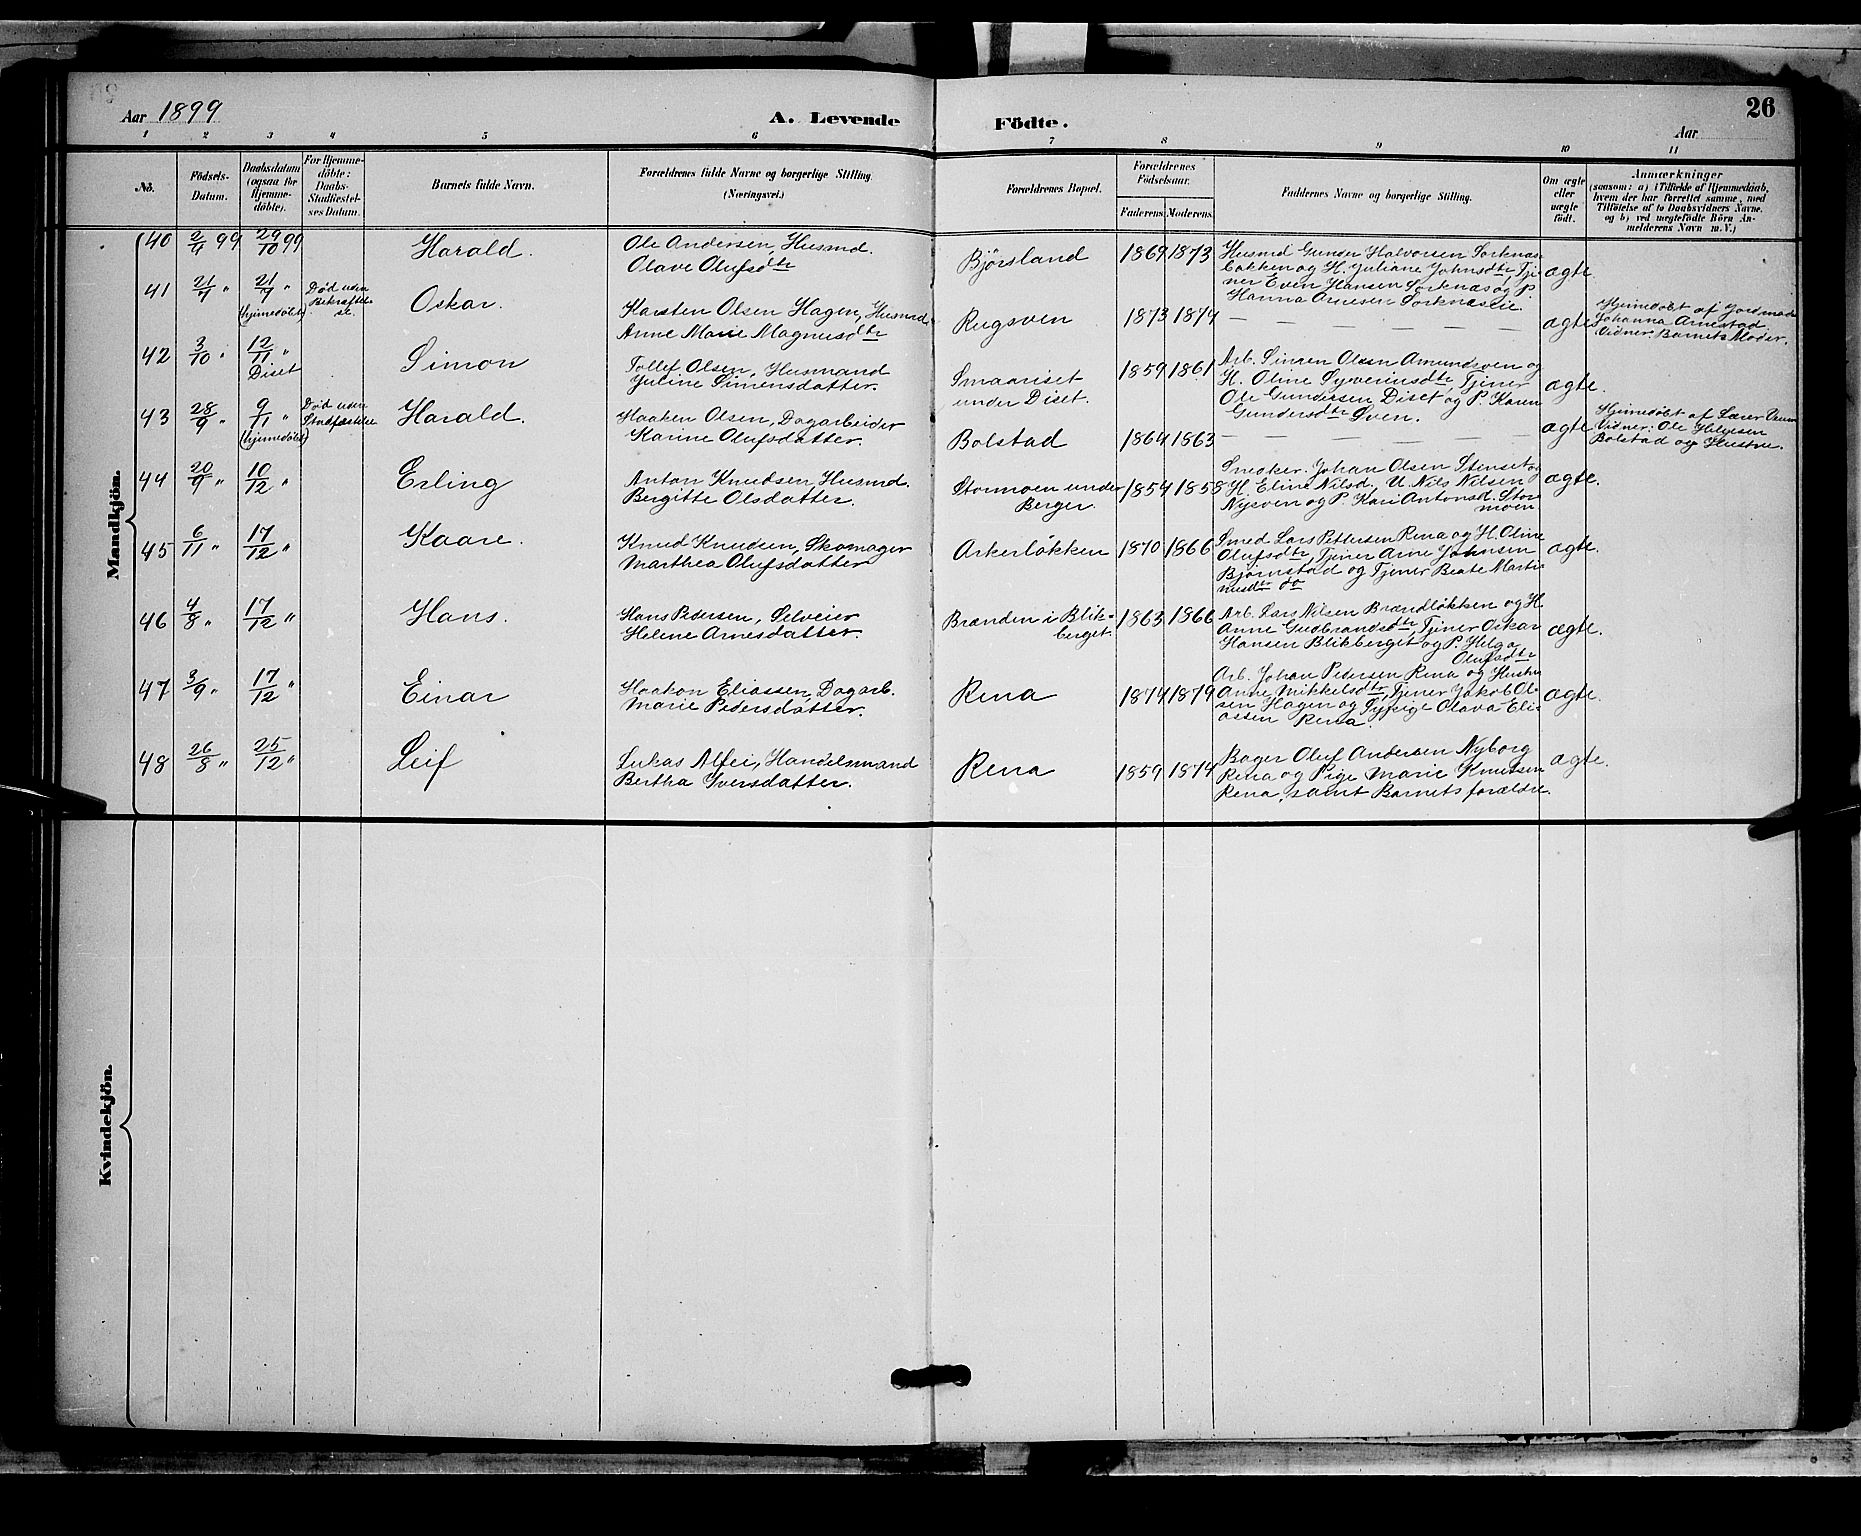 Aar 1899
A. Levende Födte.
26
Aar
1 2 3 4 5 6 7 8 9 10 11
No.
Födsels-
Datum.
Daabsdatum
(ogsaa for
Hjemme-
döbte).
For Hjemme-
döbte:
Daabs-
Stadfæstel-
ses Datum.
Barnets fulde Navn.
Forældrenes fulde Navne og borgerlige Stilling
(Næringsvei.)
Forældrenes Bopæl.
Forældrenes
Födselsaar.
Faderens. Moderens.
Faddernes Navne og borgerlige Stilling.
Om ægte
eller
uægte
födt.
Anmærkninger
(saasom: a) i Tilfælde af Hjemmedaab,
hvem der har forrettet samme, med
Tilföielse af to Daabsvidners Navne,
og b) ved uægtefödte Börn An-
melderens Navn m. V.)
Mandkjön.
40 2/9 99 29/10 99 Harald.
Ole Andersen, Husmd.
Olave Olufsdtr
Björsland 1869 1873
Husmd Gunder Halvorsen Sorknæs-
bakken og H. Juliane Johnsdtr, Tje-
ner Even Hansen Sorknæs og P.
Hanna Arnesen Sorknæseie.
ægte.
41 21/9 " 21/9 " (hjemmedöbt)
Död uden
Bekræftel-
se.
Oskar.
Karsten Olsen Hagen, Husmd
Anne Marie Magnusdtr
Rugsven 1873 1874 — — — — — — — ægte
Hjemmedöbt af Jordmod.
Johanna Arnestad.
Vidner: Barnets Moder.
42 3/10 " 12/11 " Diset Simon
Tollef Olsen, Husmand
Juline Simensdatter.
Smaariset
under Diset. 1859 1861
Arb. Simen Olsen Amundsven og
H. Oline Syverinsdtr, Tjener
Ole Gundersen Diset og P. Karen
Gundersdtr Sven.
ægte.
43 28/9 " 9/11 " (hjemmedöbt)
Död uden
Stadfæstelse
Harald.
Haaken Olsen, Dagarbeider
Karine Olufsdatter.
Bolstad 1864 1863 — — — — — — — ægte
Hjemmedöbt af Lærer
Vidner: Ole Helgesen
Bolstad og Hustru.
44 20/9 " 10/12 " Erling
Anton Knudsen Husmd.
Bergitte Olsdatter.
Stormoen under
Berger. 1854 1858
Snedker Johan Olsen Stenset og
H. Eline Nilsd. U. Nils Nilsen
Nysven og P. Kari Antonsd. Stor-
moen.
ægte.
45 6/11 " 17/12 " Kaare.
Knud Knudsen, Skomager
Marthea Olufsdatter
Arkerløkken 1870 1866
Smed Lars Pettersen Rena og H. Oline
Olufsdtr, Tjener Arne Johnsen
Bjørnstad og Tjener Beate Marti-
nusdtr do
ægte.
46 4/8 " 17/12 " Hans.
Hans Pedersen, Selveier
Helene Arnesdatter.
Brænden i Blik-
berget. 1863 1866
Arb. Lars Nilsen Brændløkken og H.
Anne Gudbrandsdtr, Tjener Oskar
Hansen Blikberget og P. Helga
Olufsdtr
ægte.
47 3/9 " 17/12 " Einar
Haakon Eliassen, Dagarb.
Marie Pedersdatter.
Rena 1874 1879
Arb. Johan Pedersen Rena og Hustru
Anne Mikkelsdtr, Tjener Jakob Ol-
sen Hagen og Sypige Olava Eli-
assen Rena.
ægte.
48 26/8 " 25/12 " Leif
Lukas Alfei, Handelsmand
Bertha Iversdatter.
Rena 1859 1874
Bager Oluf Andersen Nyborg
Rena og Pige Marie Knutsen
Rena, samt Barnets forældre.
ægte.
Kvindekjön.